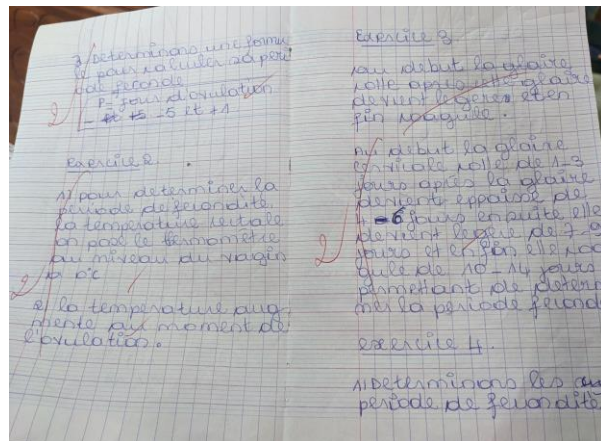 3/ Determinons une formu
le pour calculer sa peri
ode feconde
P = jour d'ovulation
-5 et +1
2
Exercice 2
1) pour determiner la
période de fecondité
la température rectale
on pose le termomètre
au niveau du vagin
à 0°c
2
2) la température aug
mente au moment de
l'ovulation.
Exercice 3
au debut la glaire
colle après glaire
devient legere et en
fin coagule.
au debut la glaire
cervicale colle de 1-3
jours après la glaire
devient eppaisse de
4-6 jours ensuite elle
devient legère de 7-9
jours et enfin elle coa
gule de 10-14 jours
permetant de determi
ner la période feconde
2
exercice 4.
1) Determinons les
période de fecondité